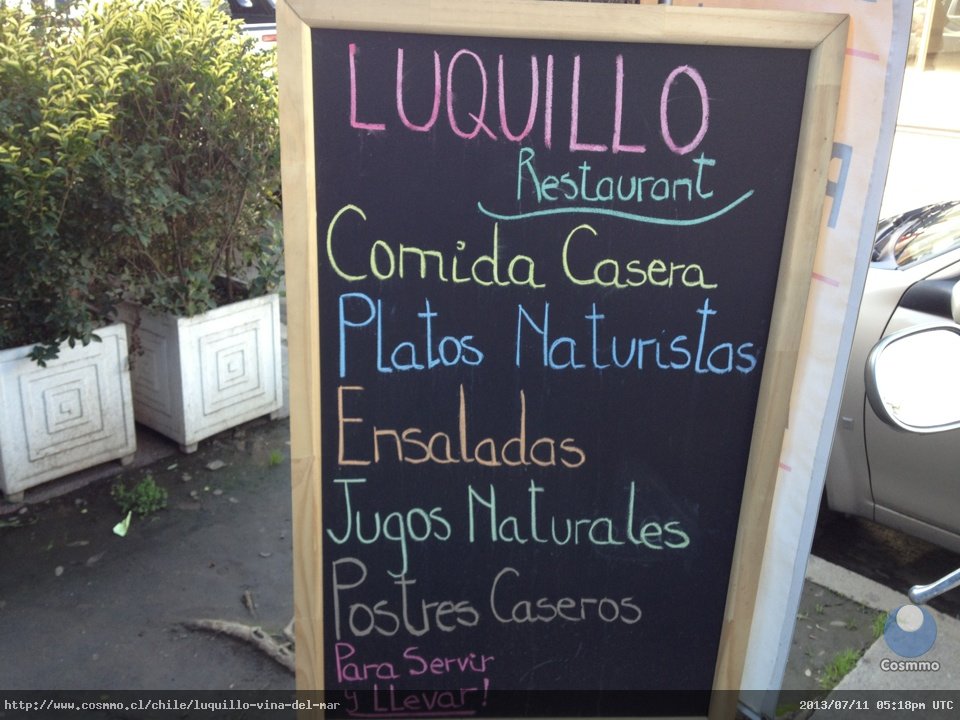 LUQUILLO
Restaurant
Comida Casera
Platos Naturistas
Ensaladas
Jugos Naturales
Postres Caseros
Para Servir
y LLevar!
Cosmmo
http://www.cosmmo.cl/chile/luquillo-vina-del-mar
2013/07/11 05:18pm UTC